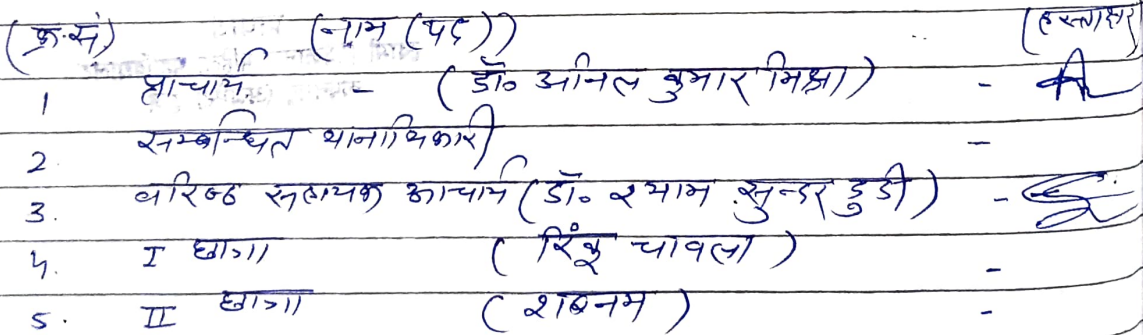 (क्र.सं) (नाम (पद)) (हस्ताक्षर)
1 प्राचार्य - (डॉ० अनिल कुमार मिश्रा) -
2. सम्बन्धित थानाधिकारी -
3. वरिष्ठ सहायक आचार्य (डॉ० श्याम सुन्दर डुडी) -
4. I छात्रा (रिंकू चावला) -
5. II छात्रा (शबनम) -